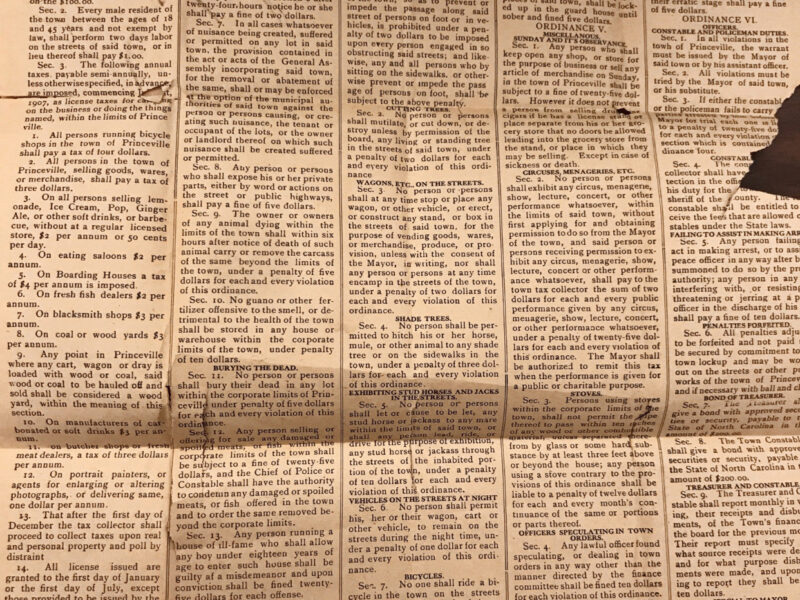 on the $100.00.
Sec. 2. Every male resident of
the town between the ages of 18
and 45 years and not exempt by
law, shall perform two days labor
on the streets of said town, or in
lieu thereof shall pay $1.00.
Sec. 3. The following annual
taxes. payable semi-annually, un-
less otherwise specified, in advance
are imposed, commencing
1907, as license taxes for
on the business or doing the things
named, within the limits of Prince
ville.
1. All persons running bicycle
shops in the town of Princeville
shall pay a tax of four dollars.
2. All persons in the town of
Princeville, selling goods, wares,
or merchandise, shall pay a tax of
three dollars.
3. On all persons selling lem-
onade, Ice Cream, Pop, Ginger
Ale, or other soft drinks, or barbe-
cue, without at a regular licensed
store, $2 per annum or 50 cents
per day.
4. On eating saloons $2 per
annum.
5. On Boarding Houses a tax
of $4 per annum is imposed.
6. On fresh fish dealers $2 per
annum.
7. On blacksmith shops $3 per
annum.
8. On coal or wood yards $3
per annum.
9. Any point in Princeville
where any cart, wagon or dray is
loaded with wood or coal, said
wood or coal to be hauled off and
sold shall be considered a wood
yard, within the meaning of this
section.
10. On manufacturers of car-
bonated or soft drinks $3 per an-
num.
11. on butcher shops or fresh
meat dealers, a tax of three dollars
per annum.
12. On portrait painters, or
agents for enlarging or altering
photographs, or delivering same,
one dollar per annum.
13. That after the first day of
December the tax collector shall
proceed to collect taxes upon real
and personal property and poll by
distraint
14. All license issued are
granted to the first day of January
or the first day of July, except
those provided to be issued by the
twenty-four hours notice he or she
shall pay a fine of two dollars.
Sec. 7. In all cases whatsoever
of nuisance being created, suffered
or permitted on any lot in said
town, the provision contained in
the act or acts of the General As-
sembly incorporating said town,
for the removal or abatement of
the same, shall or may be enforced
at the option of the municipal au-
thorities of said town against the
person or persons causing, or cre-
ating such nuisance, the tenant or
occupant of the lots, or the owner
or landlord thereof on which such
nuisance shall be created suffered
or permitted.
Sec. 8. Any person or persons
who shall expose his or her private
parts, either by word or actions on
the street or public highways,
shall pay a fine of five dollars.
Sec. 9. The owner or owners
of any animal dying within the
limits of the town shall within six
hours after notice of death of such
animal carry or remove the carcass
of the same beyond the limits of
the town, under a penalty of five
dollars for each and every violation
of this ordinance.
Sec. 10. No guano or other fer-
tilizer offensive to the smell, or de-
trimental to the health of the town
shall be stored in any house or
warehouse within the corporate
limits of the town, under penalty
of ten dollars.
BURYING THE DEAD.
Sec. 11. No person or persons
shall bury their dead in any lot
within the corporate limits of Prin-
ceville under penalty of five dollars
for each and every violation of this
ordinance.
Sec. 12. Any person selling or
offering for sale any damaged or
spoiled meats, or fish within the
corporate limits of the town shall
be subject to a fine of twenty-five
dollars, and the Chief of Police or
Constable shall have the authority
to condemn any damaged or spoiled
meats, or fish offered in the town
and to order the same removed be-
yond the corporate limits.
Sec. 13. Any person running a
house of ill-fame who shall allow
any boy under eighteen years of
age to enter such house shall be
guilty of a misdemeanor and upon
conviction shall be fined twenty-
five dollars for each offense.
impede the passage along said
street of persons on foot or in ve-
hicles, is prohibited under a pen-
alty of two dollars to be imposed
upon every person engaged in so
obstructing said streets; and like-
wise, any and all persons who by
sitting on the sidewalks. or other-
wise prevent or impede the pass
age of persons on foot, shall be
subject to the above penalty.
CUTTING TREES.
Sec. 2. No person or persons
shall mutilate, or cut down, or de-
stroy unless by permission of the
board, any living or standing tree
in the streets of said town, under
a penalty of two dollars for each
and every violation of this ordi-
nance
WAGONS, ETC., ON THE STREETS.
Sec. 3 No person or persons
shall at any time stop or place any
wagon, or other vehicle, or erect,
or construct any stand, or box in
the streets of said town, for the
purpose of vending goods, wares,
or merchandise, produce, or pro-
vision, unless with the consent of
the Mayor, in writing, nor shall
any person or persons at any time
encamp in the streets of the town,
under a penalty of two dollars for
each and every violation of this
ordinance.
SHADE TREES.
Sec. 4. No person shall be per-
mitted to hitch his or her horse,
mule, or other animal to any shade
tree or on the sidewalks in the
town, under a penalty of three dol-
lars for each and every violation
of this ordinance.
EXHIBITING STUD HORSES AND JACKS
ON THE STREETS.
Sec. 5. No person or persons
shall let or cause to be let, any
stud horse or jackass to any mare
within the limits of said town, or
shall any person lead, ride, or
drive for the purpose of exhibition,
any stud horse or jackass through
the streets of the inhabited por-
tion of the town, under a penalty
of ten dollars for each and every
violation of this ordinance.
VEHICLES ON THE STREETS AT NIGHT
Sec. 6. No person shall permit
his, her or their wagon, cart or
other vehicle, to remain on the
streets during the night time, un-
der a penalty of one dollar for each
and every violation of this ordi-
nance.
BICYCLES.
Sec. 7. No one shall ride a bi-
cycle in the town on the streets
ed up in the guard house until
sober and fined five dollars.
ORDINANCE V.
MISCELLANEOUS.
SUNDAY AND IT'S OBSERVANCE.
Sec. 1. Any person who shall
keep open any shop, or store for
the purpose of business or sell any
article of merchandise on Sunday,
in the town of Princeville shall be
subject to a fine of twenty-five dol-
lars. However is does not prevent
a person from selling
cigars if he has a license
place separate from his or her gro-
cery store that no doors be allowed
leading into the grocery store from
the stand, or place in which they
may be selling. Except in case of
sickness or death.
CIRCUSES, MENAGERIES, ETC.
Sec. 2. No person or persons
shall exhibit any circus, menagerie,
show, lecture, concert, or other
performance whatsoever, within
the limits of said town, without
first applying for and obtaining
permission to do so from the Mayor
of the town, and said person or
persons receiving permission to ex-
hibit any circus, menagerie, show,
lecture, concert or other perform-
ance whatsoever, shall pay to the
town tax collector the sum of two
dollars for each and every public
performance given by any circus,
menagerie, show, lecture, concert,
or other performance whatsoever,
under a penalty of twenty-five dol-
lars for each and every violation of
this ordinance. The Mayor shall
be authorized to remit this tax
when the performance is given for
a public or charitable purpose.
STOVES.
Sec. 3. Persons using stoves
within the corporate limits of
town, shall not permit the
thereof to pass within ten inches
of any wood or other combustible
from by glass or some hard sub-
stance by at least three feet above
or beyond the house; any person
using a stove contrary to the pro-
visions of this ordinance shall be
liable to a penalty of twelve dollars
for each and every month's con-
tinuance of the same or portions
or parts thereof.
OFFICERS SPECULATING IN TOWN
ORDERS.
Sec. 4. Any lawful officer found
speculating or dealing in town
orders in any way other than the
manner directed by the finance
committee shall be fined ten dollars
for each violation of this ordinance.
their erratic stage shall pay a fine
of five dollars.
ORDINANCE VI.
OFFICERS.
CONSTABLE AND POLICEMAN DUTIES.
Sec. 1. In all violations in the
town of Princeville, the warrant
must be issued by the Mayor of
said town or by his assistant officer.
Sec. 2. All violations must be
tried by the Mayor of said town,
or his substitute.
Sec. 3. If either the constable
or the policeman fails to carry
Mayor for trial each one is
to a penalty of twenty-five dol
for each and every violation of
section which is contained
dinance four.
CONSTABL
Sec. 4. The con
collector shall have
tection in the offi
his duty for the
sheriff of the county. The
constable shall be entitled to
ceive the fees that are allowed c
stables under the State laws.
FAILING TO ASSIST IN MAKING ARR
Sec. 5. Any person failing
act in making arrest, or to assi
peace officer in any way after b
summoned to do so by the pro
authority; any person in any
interfering with, or resisting
threatening or jerring at a p
officer in the discharge of his
shall pay a fine of ten dollars.
PENALTIES FORFEITED.
Sec. 6. All penalties adjud
to be forfeited and not paid
be secured by commitment to
town lockup and may be wo
out on the streets or other pu
works of the town of Princev
and if necessary with ball and ch
BOND OF TREASURER.
Sec. 7. The treasurer shall
give a bond with approved secu
ties or security, payable to
State of North Carolina
Sec. 8. The Town Constab
shall give a bond with approved
securities or security, payable
the State of North Carolina in t
amount of $200.00.
TREASURER AND CONSTABLE.
Sec. 9. The Treasurer and C
stable shall report monthly in w
ing, their receipts and disbu
ments, of the Town's finance
the board for the previous m
Their report must specify
what source receipts were de
and for what purpose disb
ments were made, and upon
ing to report they shall be
ten dollars.